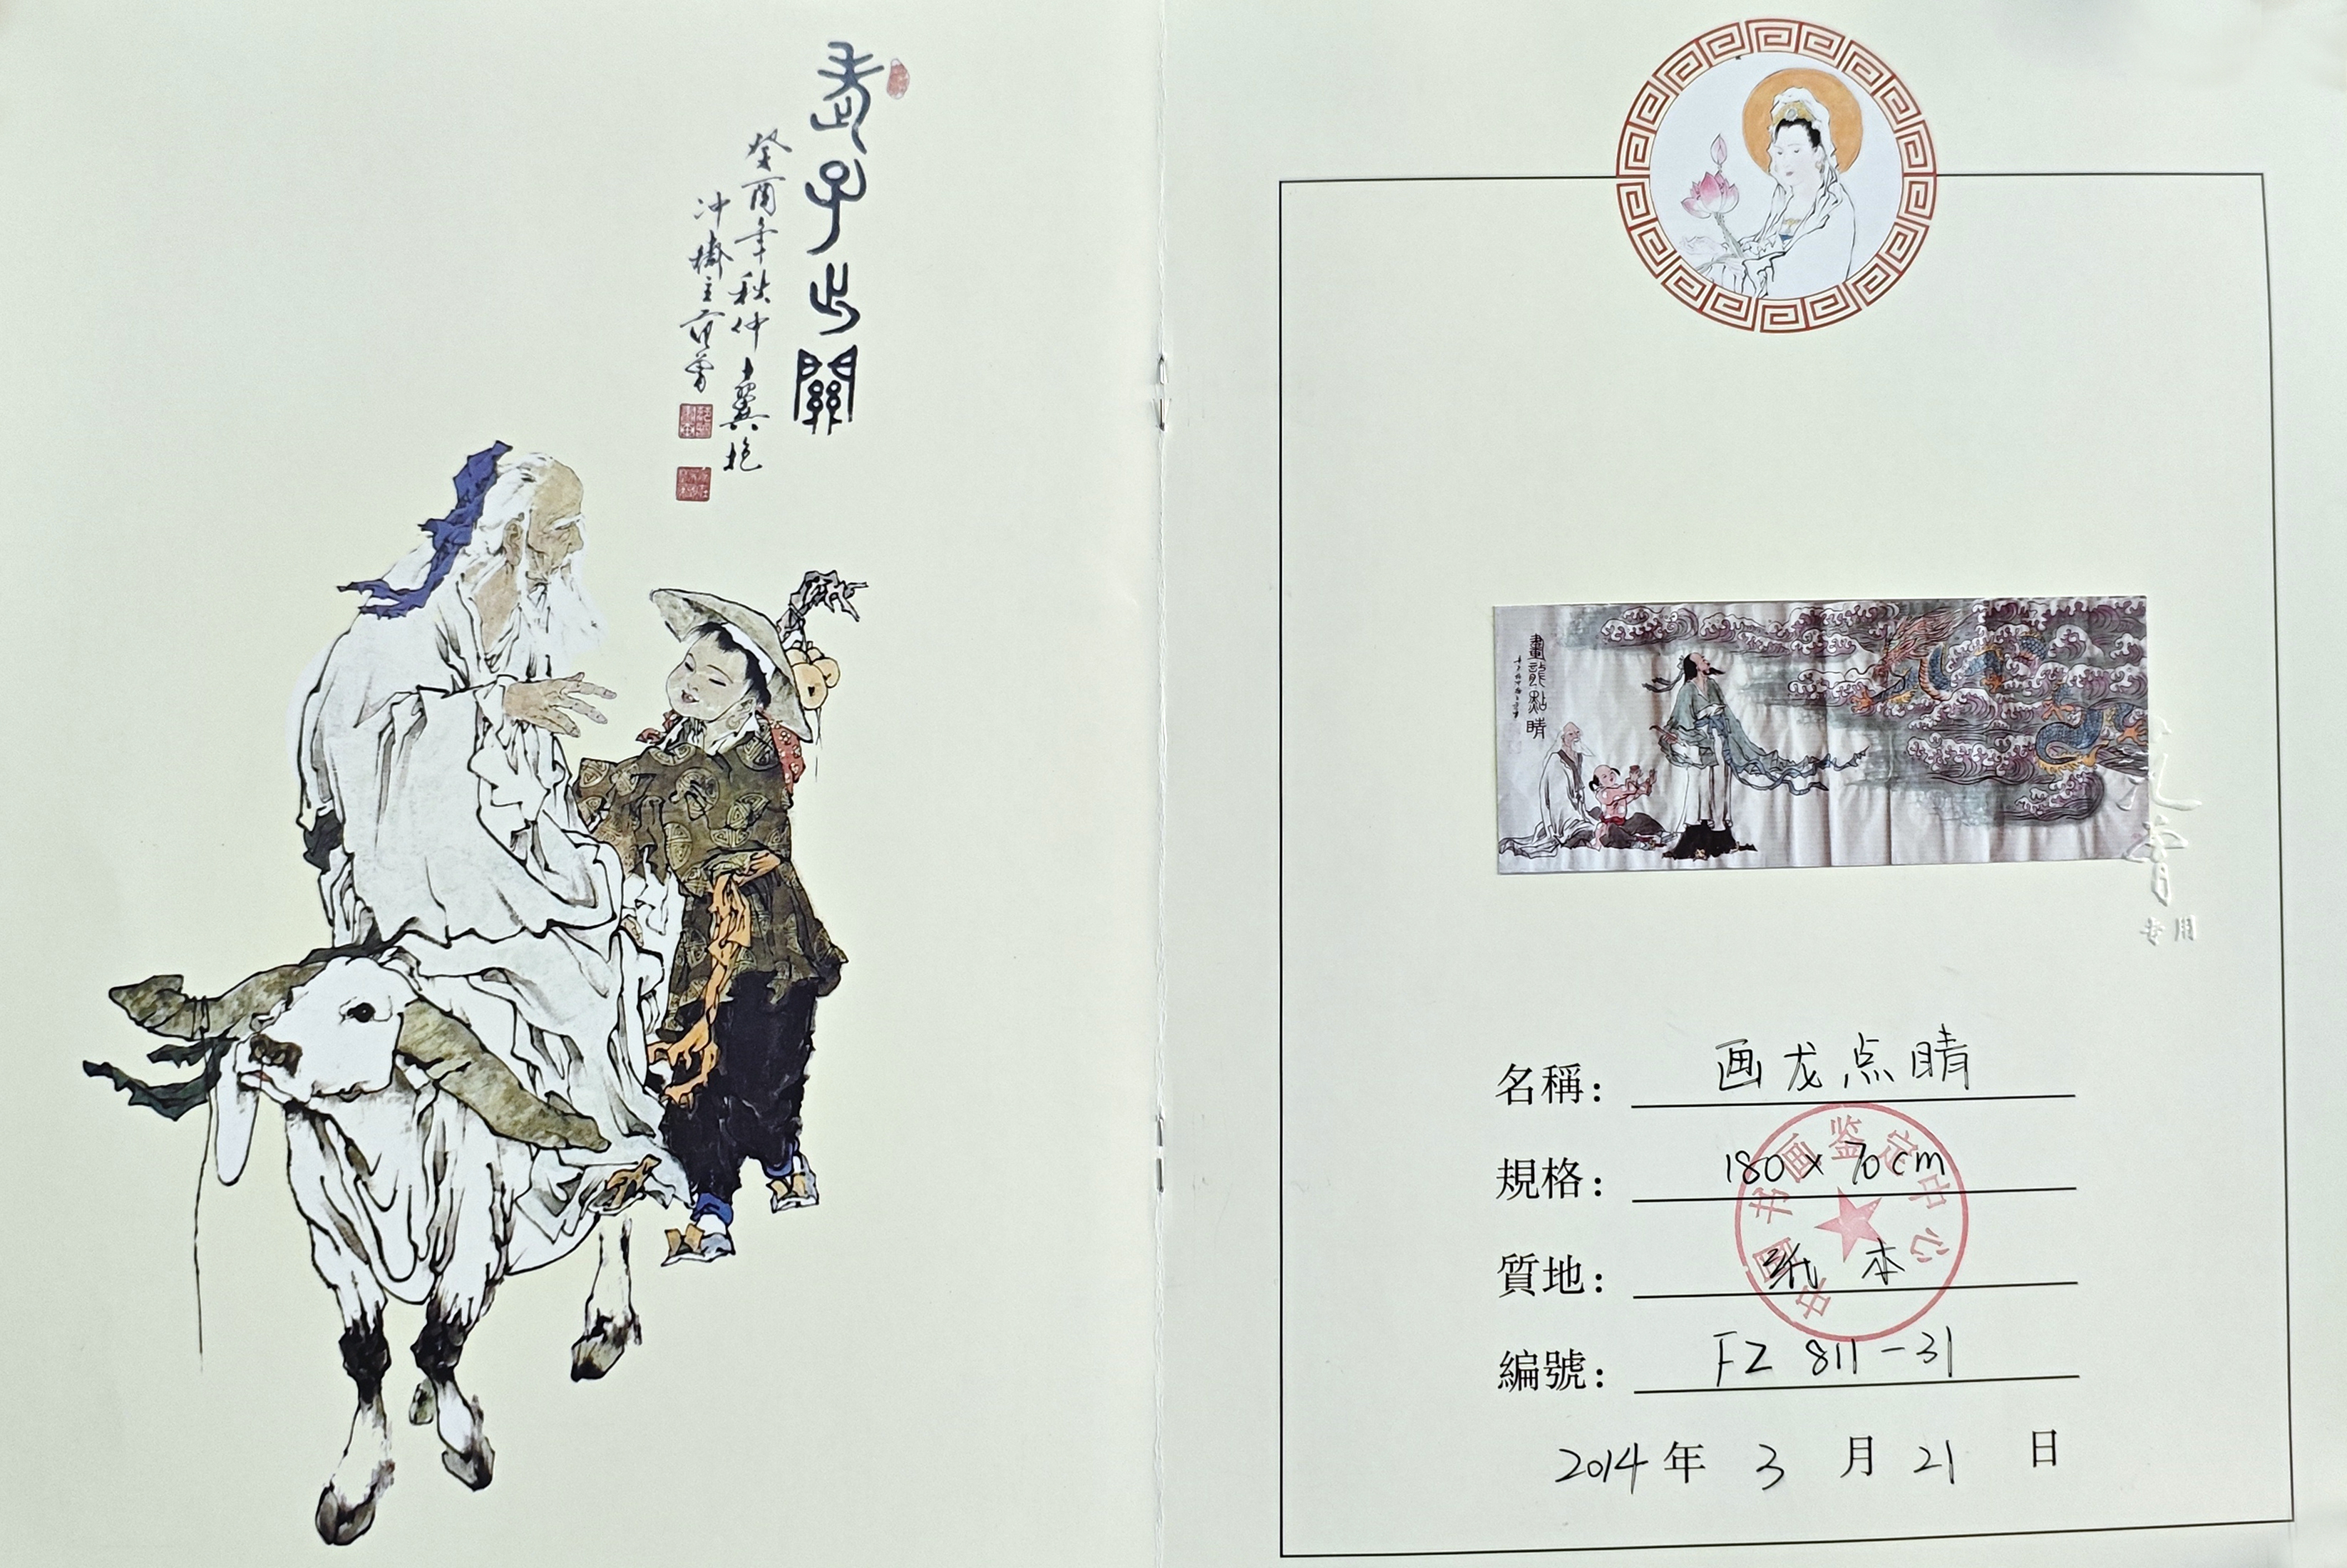 老子出關
癸酉年秋仲十翼抱
冲齋主范曾
畫龍點睛
专用
名稱：画龙点睛
規格：180×70cm
質地：纸本
編號：FZ 811-31
中国书画鉴定中心
2014年3月21日